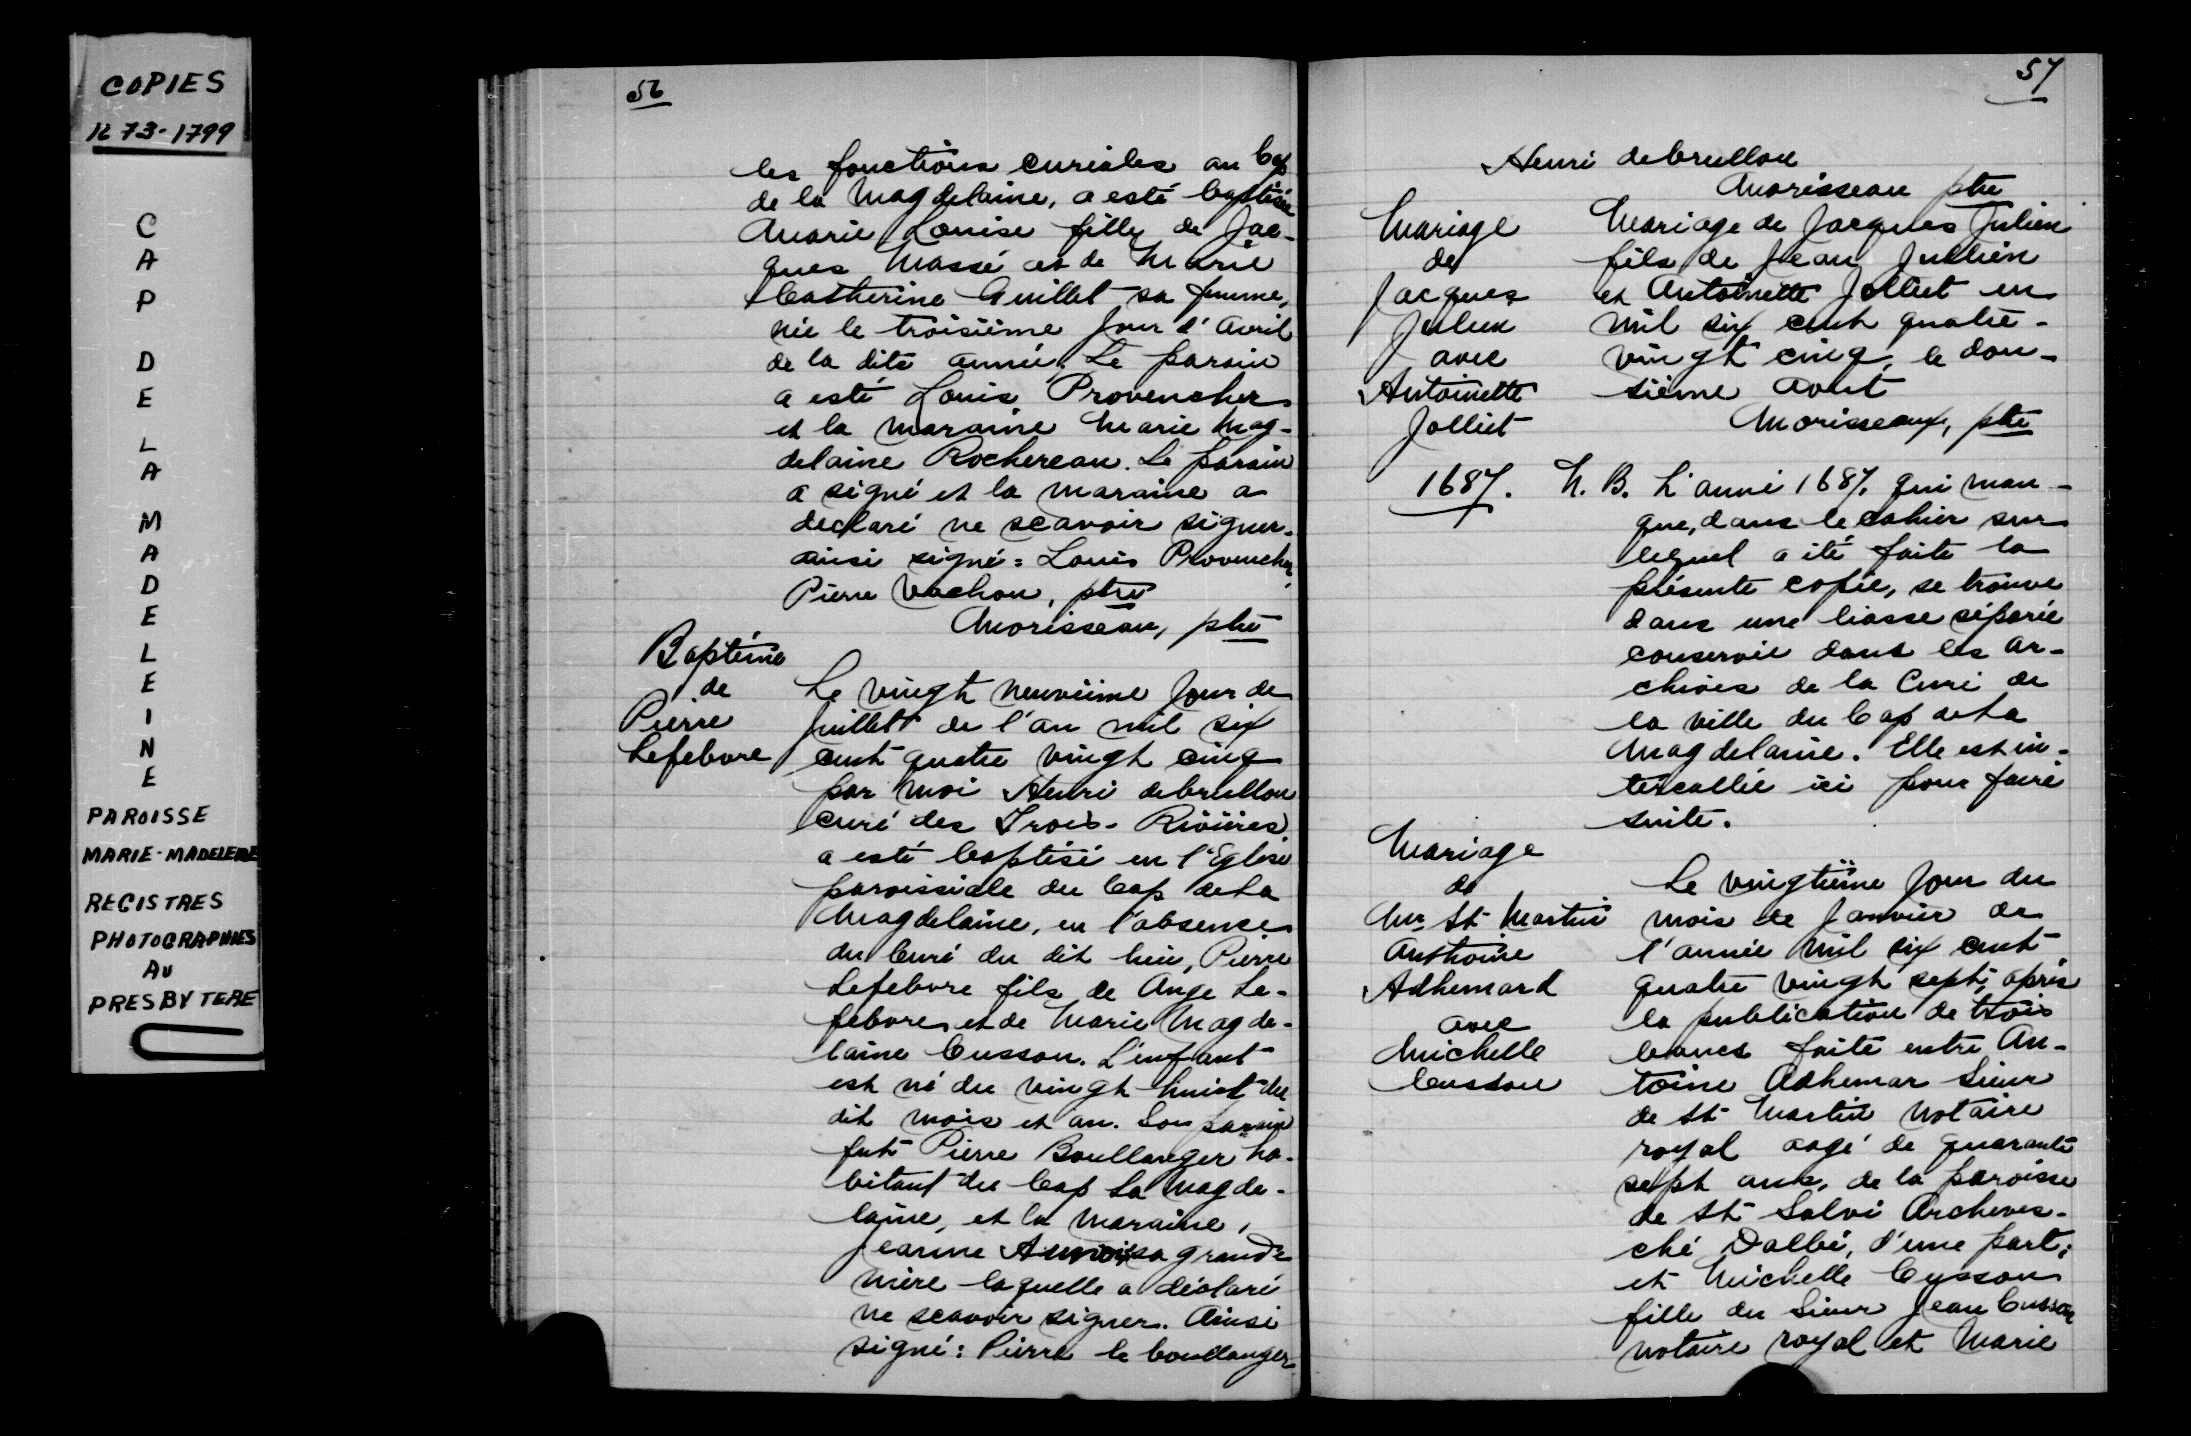 COPIES
1673-1799
CAP DE LA MADELEINE
PAROISSE
MARIE-MADELEINE
REGISTRES
PHOTOGRAPHIES
AU
PRESBYTERE
56
les fonctions curiales au Cap
de la Magdelaine, a esté baptisée
Marie Louise fille de Jac-
ques Massé et de Marie
Catherine Guillet sa femme,
née le troisième jour d'Avril
de la dite année. Le parain
a esté Louis Provencher
et la maraine Marie Mag-
delaine Rochereau. Le parain
a signé et la maraine a
declaré ne scavoir signer.
ainsi signé = Louis Provencher,
Pierre Vachon, ptre
Morisseau, ptre
Baptême
de
Pierre
Lefebvre
Le vingt neuvième jour de
Juillet de l'an mil six
cent quatre vingt cinq
par moi Henri debrullon
curé des Trois-Rivières
a esté baptisé en l'Eglise
paroissiale du Cap de La
Magdelaine, en l'absence
du Curé du dit lieu, Pierre
Lefebvre fils de Ange Le-
febvre et de Marie Magde-
laine Cusson. L'enfant
est né du vingt huict du
dit mois et an. Son parain
fut Pierre Boullanger ha-
bitant du Cap La Magde-
laine, et la maraine,
Jeanne sa grand
mère laquelle a déclaré
ne scavoir signer. Ainsi
signé: Pierre le boullanger
57
Henri debrullon
Morisseau ptre
Mariage
de
Jacques
Julien
avec
Antoinette
Jolliet
Mariage de Jacques Julien
fils de Jean Jullien
et Antoinette Jolliet en
mil six cent quatre-
vingt cinq, le dou-
sième avout
Morisseaux, ptre
1687.
N. B. L'année 1687. qui man-
que, dans le cahier sur
lequel a été faite la
présente copie, se trouve
dans une liasse séparée
conservée dans les ar-
chives de la Cure de
la ville du Cap de La
Magdelaine. Elle est in-
tercallée ici pour faire
suite.
Mariage
de
Mr St Martin
Anthoine
Adhemard
avec
Michelle
Cusson
Le vingtième jour du
mois de Janvier de
l'année mil six cent
quatre vingt sept, après
la publication de trois
bancs faite entre An-
toine Adhemar Sieur
de St Martin notaire
royal aagé de quarante
sept ans, de la paroisse
de St Salvi Archeves-
ché Dalbé, d'une part;
et Michelle Cusson
fille du Sieur Jean Cusson
notaire royal et Marie